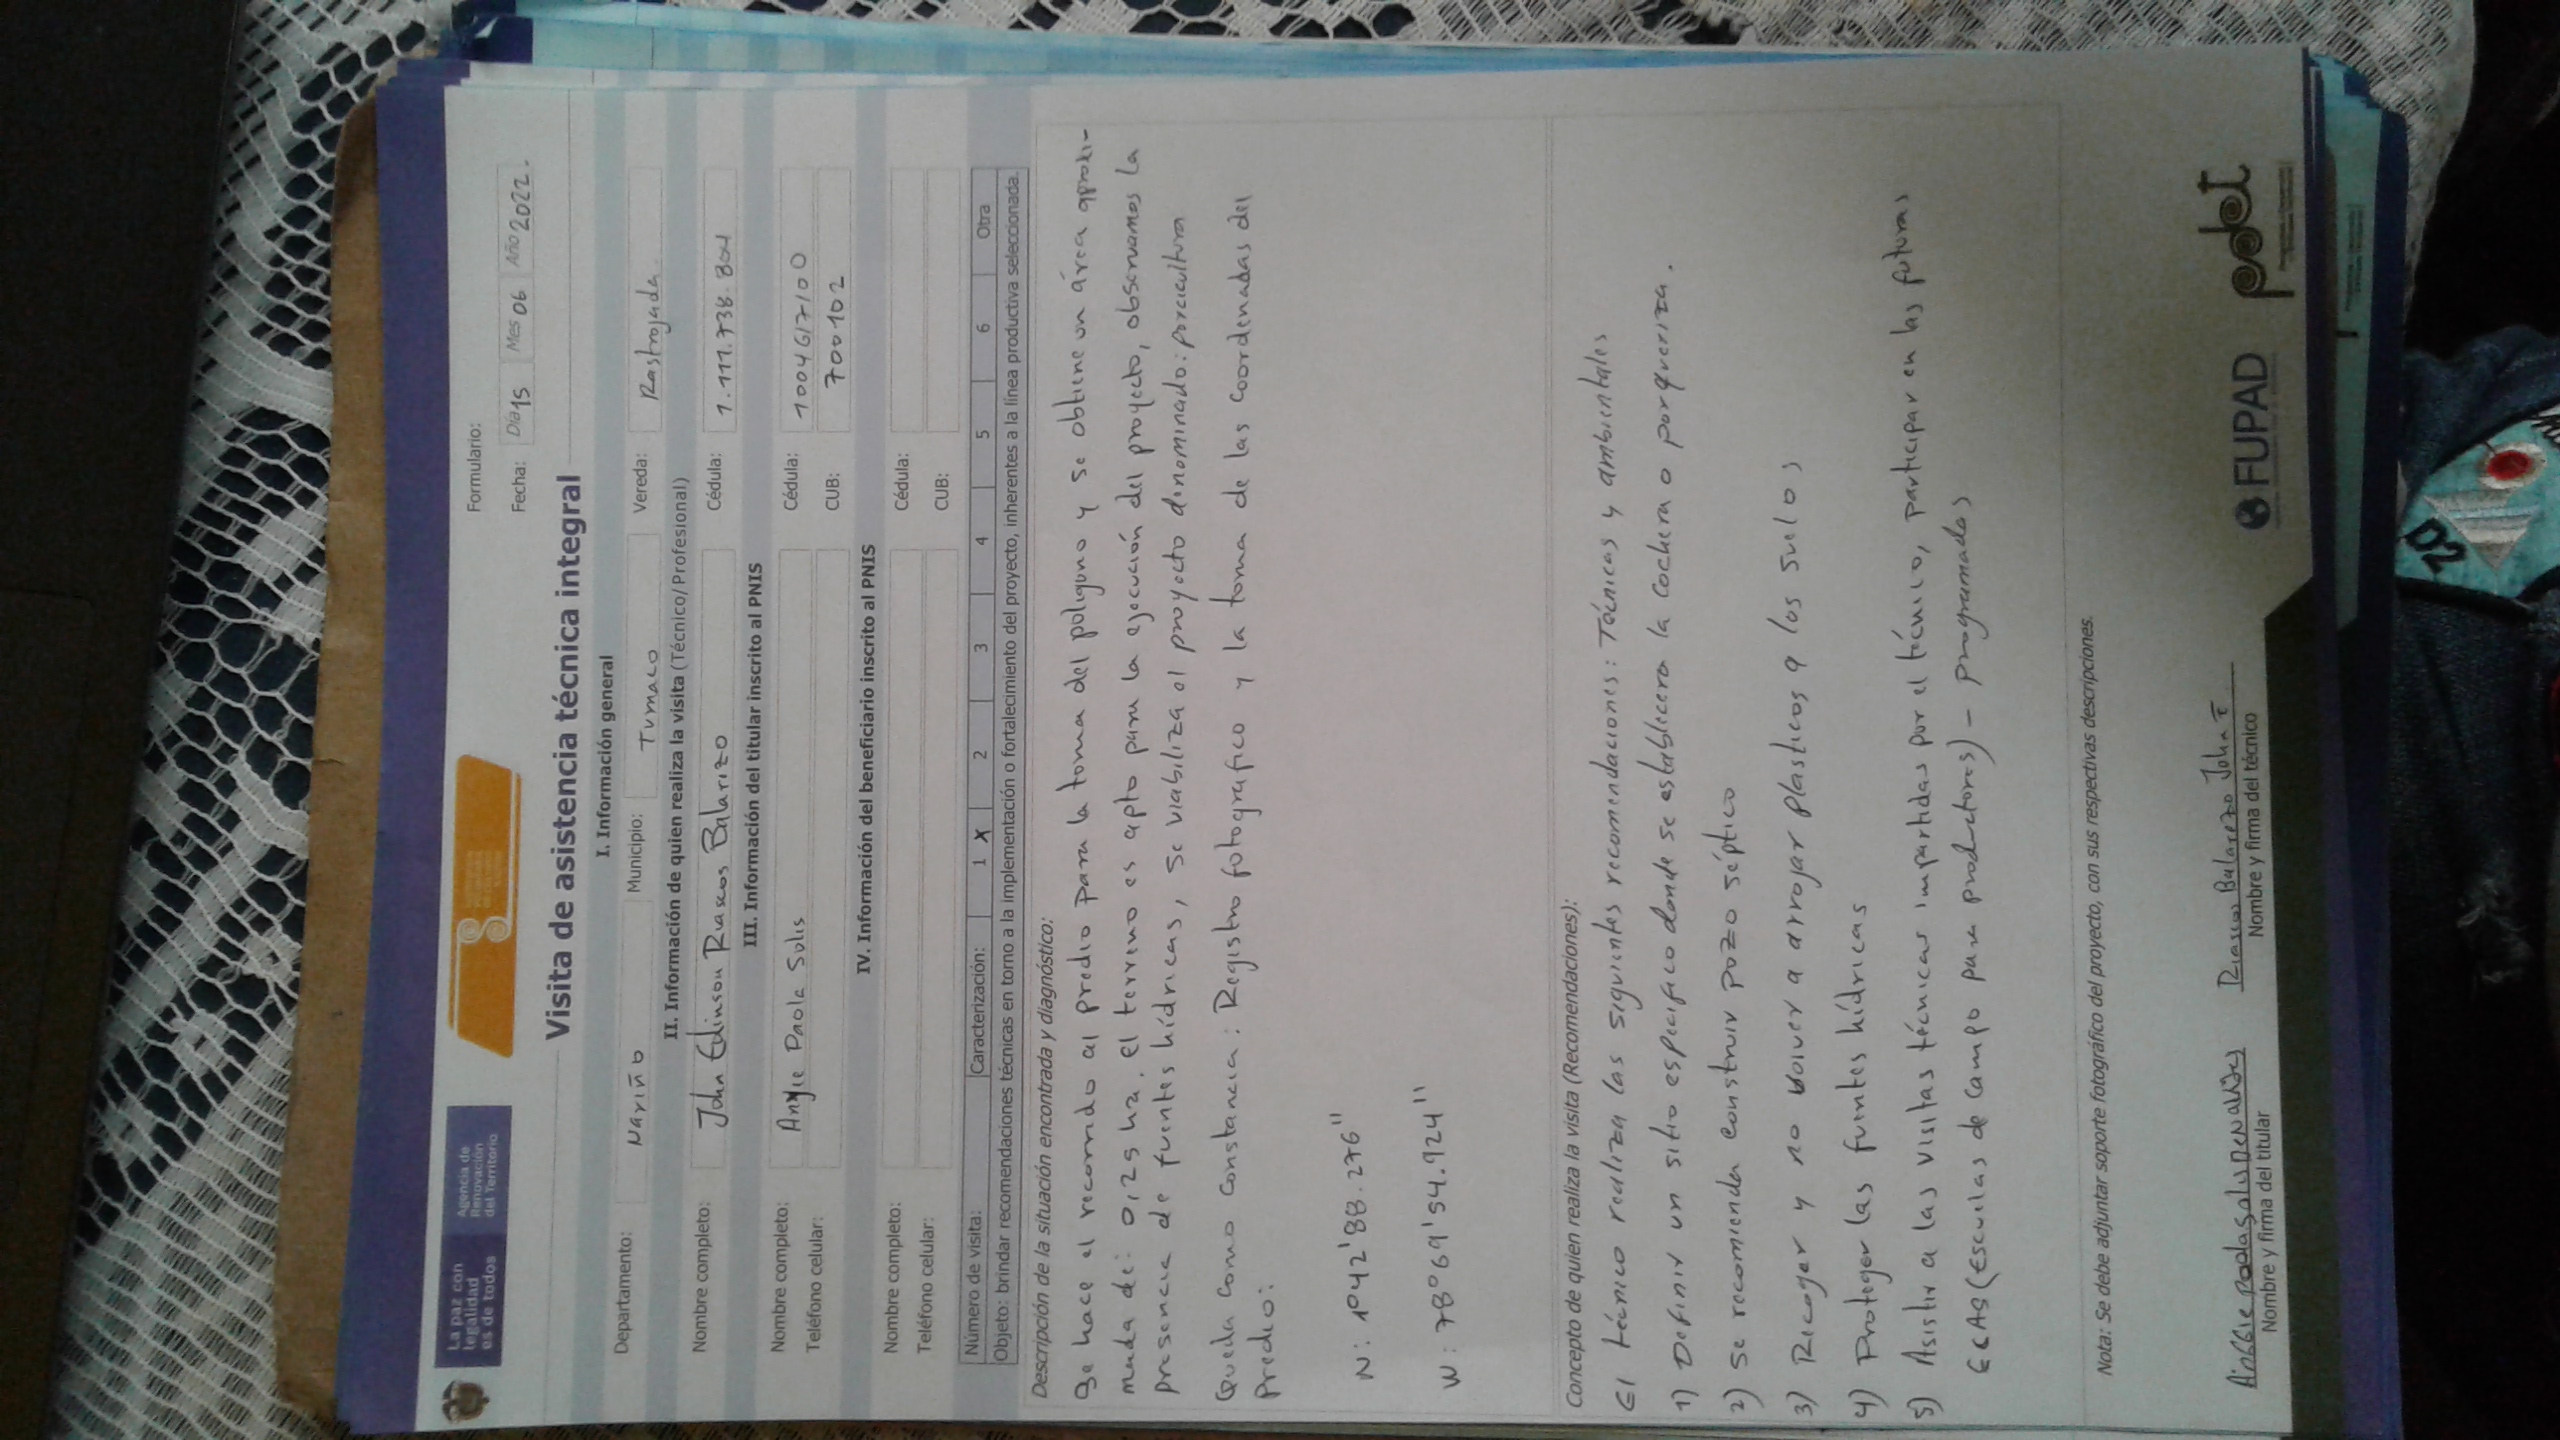 La paz con
legalidad
es de todos
Agencia de
Renovación
del Territorio
Formulario:
Fecha: Día 15 Mes 06 Año 2022.
Visita de asistencia técnica integral
I. Información general
Departamento: Nariño Municipio: Tumaco Vereda: Rastrojada.
II. Información de quien realiza la visita (Técnico/Profesional)
Nombre completo: John Edinson Riascos Balarezo Cédula: 1.111.738.804
III. Información del titular inscrito al PNIS
Nombre completo: Angie Paola Solis Cédula: 1004617100
Teléfono celular: CUB: 700102
IV. Información del beneficiario inscrito al PNIS
Nombre completo: Cédula:
Teléfono celular: CUB:
Número de visita: Caracterización: 1 X 2 3 4 5 6 Otra
Objeto: brindar recomendaciones técnicas en torno a la implementación o fortalecimiento del proyecto, inherentes a la línea productiva seleccionada.
Descripción de la situación encontrada y diagnóstico:
Se hace el recorrido al predio para la toma del poligono y se obtiene un área aproxi-
mada de: 0,25 ha. el terreno es apto para la ejecución del proyecto, observamos la
presencia de fuentes hídricas, se viabiliza el proyecto dinominado: porcicultura
Queda como constancia: Registro fotografico y la toma de las coordenadas del
Predio:
N: 1°42'88.276"
W: 78°69'54.924"
Concepto de quien realiza la visita (Recomendaciones):
El técnico realiza las siguientes recomendaciones: Técnicas y ambientales
1) Definir un sitio especifico donde se establecera la cochera o porqueriza.
2) Se recomienda construir pozo séptico
3) Recoger y no volver a arrojar plasticos a los suelos
4) Proteger las fuentes hídricas
5) Asistir a las visitas técnicas impartidas por el técnico, participar en las futuras
ECAS (Escuelas de Campo para productores) - programadas
Nota: Se debe adjuntar soporte fotográfico del proyecto, con sus respectivas descripciones.
Riascos Balarezo John E
Nombre y firma del titular Nombre y firma del técnico
FUPAD pdet
D2